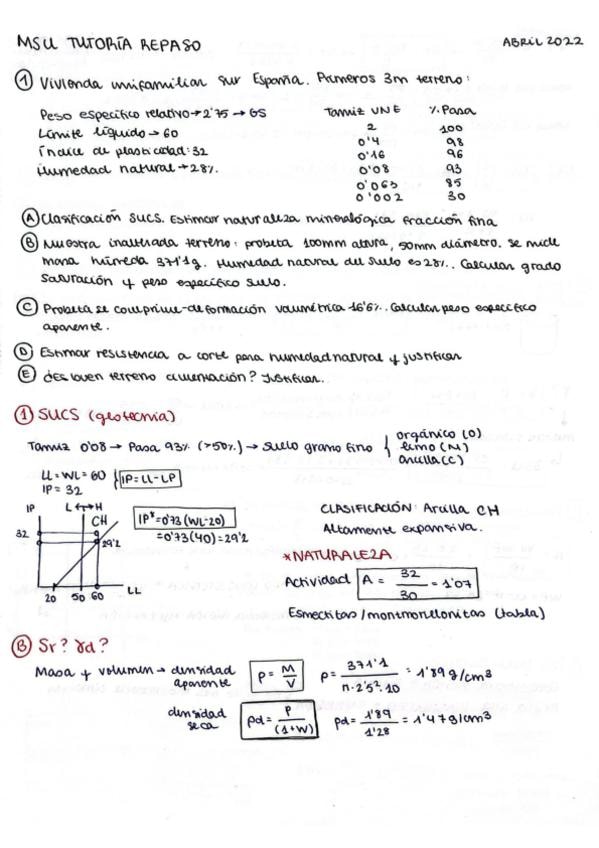 MSU TUTORÍA REPASO ABRIL 2022
① Vivienda unifamiliar sur España. Primeros 3m terreno:
Peso específico relativo → 2'75 → GS Tamiz UNE % Pasa
Límite líquido → 60 2 100
Índice de plasticidad: 32 0'4 98
Humedad natural → 28% 0'16 96
0'08 93
0'063 85
0'002 30
Ⓐ Clasificación SUCS. Estimar naturaleza mineralógica fracción fina
Ⓑ Muestra inalterada terreno: probeta 100mm altura, 50mm diámetro. Se mide
masa húmeda 371'1g. Humedad natural del suelo es 28%. Calcular grado
saturación y peso específico suelo.
Ⓒ Probeta se comprime - deformación volumétrica 16'6%. Calcular peso específico
aparente.
Ⓓ Estimar resistencia a corte para humedad natural y justificar
Ⓔ ¿Es buen terreno cimentación? Justificar.
① SUCS (geotecnia)
Tamiz 0'08 → Pasa 93% (>50%) → Suelo grano fino { orgánico (O)
limo (M)
arcilla (C)
LL = WL = 60 } IP = LL - LP
IP = 32
IP L ←→ H
CH
IP* = 0'73 (WL-20)
= 0'73 (40) = 29'2
32
29'2
20 50 60 LL
CLASIFICACIÓN: Arcilla CH
Altamente expansiva.
*NATURALEZA
Actividad A = 32/30 = 1'07
Esmectitas/montmorillonitas (tabla)
Ⓑ Sr? γd?
Masa y volumen → densidad aparente ρ = M/V ρ = 371'1/π·2'5²·10 = 1'89 g/cm3
densidad seca ρd = ρ/(1+W) ρd = 1'89/1'28 = 1'47 g/cm3